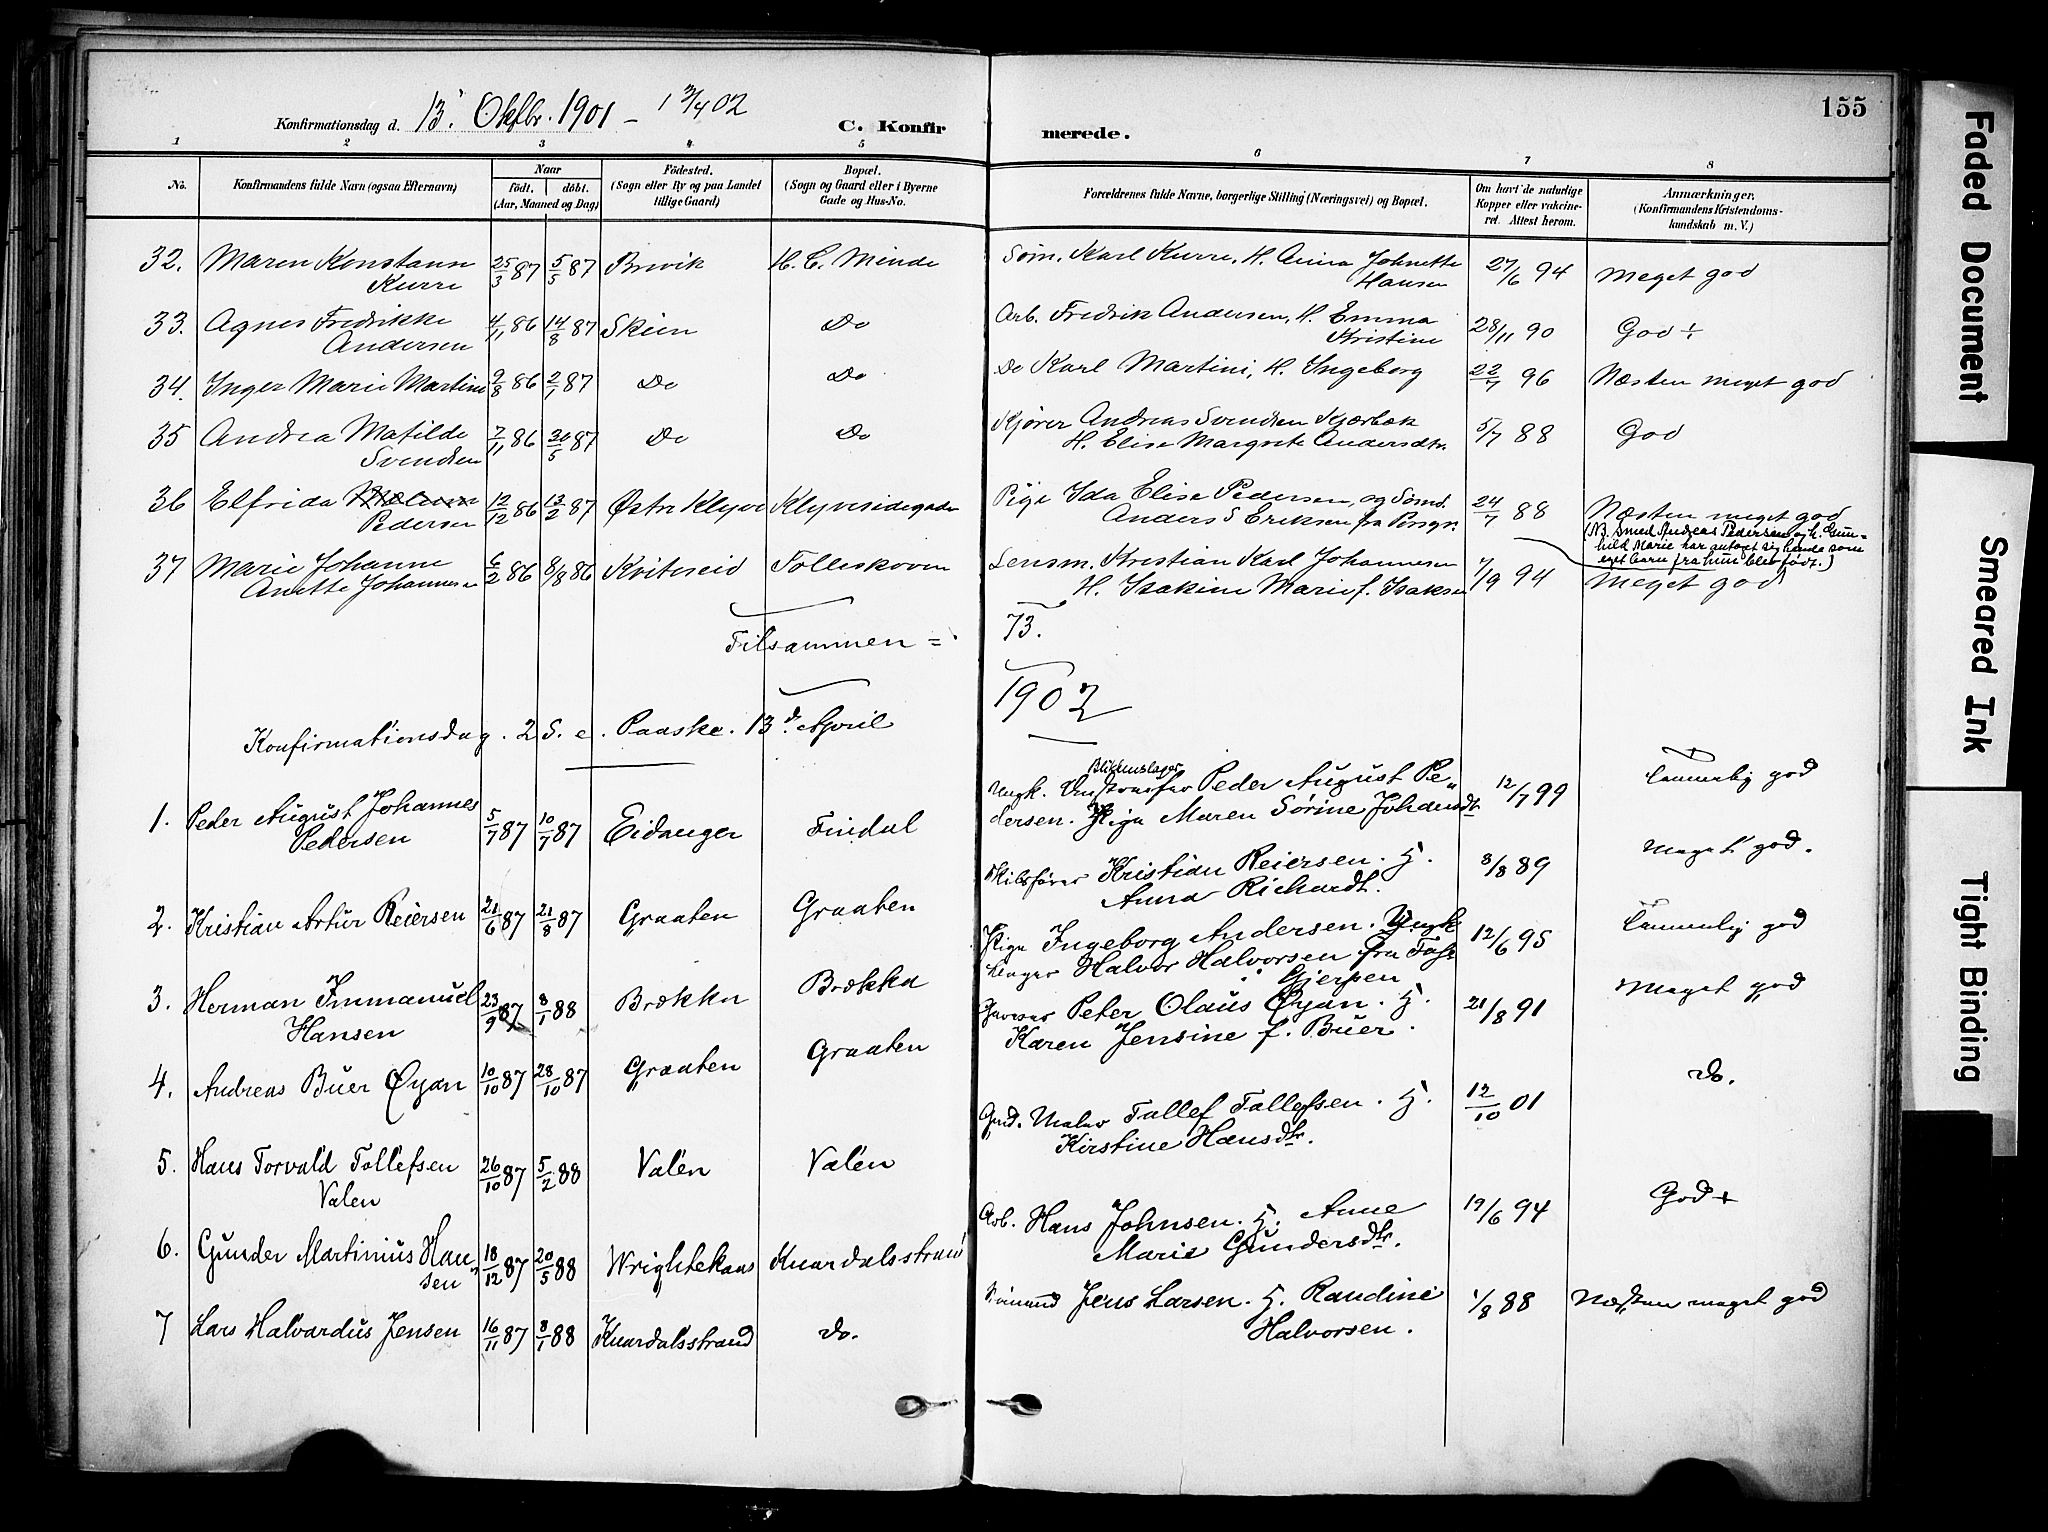 155
Konfirmationsdag d. 13. Oktbr. 1901 – 13/4 02
C. Konfirmerede.
1 2 3 4 5 6 7 8
No.
Konfirmandens fulde Navn (ogsaa Efternavn)
Naar
födt. döbt.
(Aar, Maaned og Dag)
Födested.
(Sogn eller By og paa Landet
tillige Gaard)
Bopæl.
(Sogn og Gaard eller i Byerne
Gade og Hus-No.
Forældrenes fulde Navne, borgerlige Stilling (Næringsvei) og Bopæl.
Om havt de naturlige
Kopper eller vakcine-
ret. Attest herom.
Anmærkninger.
(Konfirmandens Kristendoms-
kundskab m. V.)
32. Maren Konstanse 25/3 87 5/5 87 Brevik H. C. Minde Søm. Karl Kurre, H. Anna Johnette 27/6 94 Meget god
Kurre Hansen
33. Agnes Fredrikke 4/11 86 14/8 87 Skien Do Arb. Fredrik Andersen, H. Emma 28/11 90 God +
Andersen Kristine
34. Inger Marie Martini 9/8 86 2/7 87 Do Do Do Karl Martini, H. Ingeborg 22/7 96 Næsten meget god
35 Andrea Matilde 7/11 86 30/5 87 Do Do Kjører Andreas Svendsen Kjærbæk 5/7 88 God
Svendsen H. Elise Margrete Andersdtr.
36 Elfrida 12/12 86 13/2 87 Østre Klyve Klyvesidegaden Pige Ida Elise Pedersen, og Sømd. 24/7 88 Næsten meget god
Pedersen Anders S Eriksen fra Porsgr.
(NB. Smed Andreas Pedersen og h. Gun-
hild Marie har antaget sig hende som
eget barn fra hun blev født.)
37 Marie Johanne 6/2 86 8/8 86 Kviteseid Folleskoven Lensm. Kristian Karl Johannesen 7/9 94 Meget god
Anette Johannesen H. Isakine Marie f. Isaksen
Tilsammen = 73.
1902
Konfirmationsdag. 2 S. e. Paaske. 13d. April
1. Peder August Johannes 5/7 87 10/7 87 Eidanger Findal Ungk. Blikkenslager Peder August Pe- 12/7 99 Temmelig god
Pedersen dersen. Pige Maren Sørine Johansdtr
2. Kristian Artur Reiersen 21/6 87 21/8 87 Graaten Graaten Skibsfører Kristian Reiersen. H. 3/8 89 Meget god.
Anna Richardt.
3. Herman Immanuel 23/9 87 8/1 88 Brække Brække Pige Ingeborg Andersen. Ungk. 12/6 95 Temmelig god
Hansen Halvor Halvorsen fra
i Gjerpen
4. Andreas Buer Øyan 10/10 87 28/10 87 Graaten Graaten Garver Peter Olaus Øyan. H. 21/8 91 Meget god
Karen Jensine f. Buer.
5. Hans Torvald Tollefsen 26/10 87 5/2 88 Valen Valen Gmd. Maler Tallef Tallefsen. H. 12/10 01 do.
Valen Kirstine Hansdtr.
6. Gunder Martinius Han- 18/12 87 20/5 88 Wrightekaas Knardalsstrand Arb. Hans Johnsen. H. Anne 19/6 94 God +
sen Marie Gundersdtr.
7 Lars Halvardus Jensen 16/11 87 8/1 88 Knardalsstrand do. Sømand Jens Larsen. H. Randine 1/8 88 Næsten meget god
Halvorsen.
Faded Document
Smeared Ink
Tight Binding